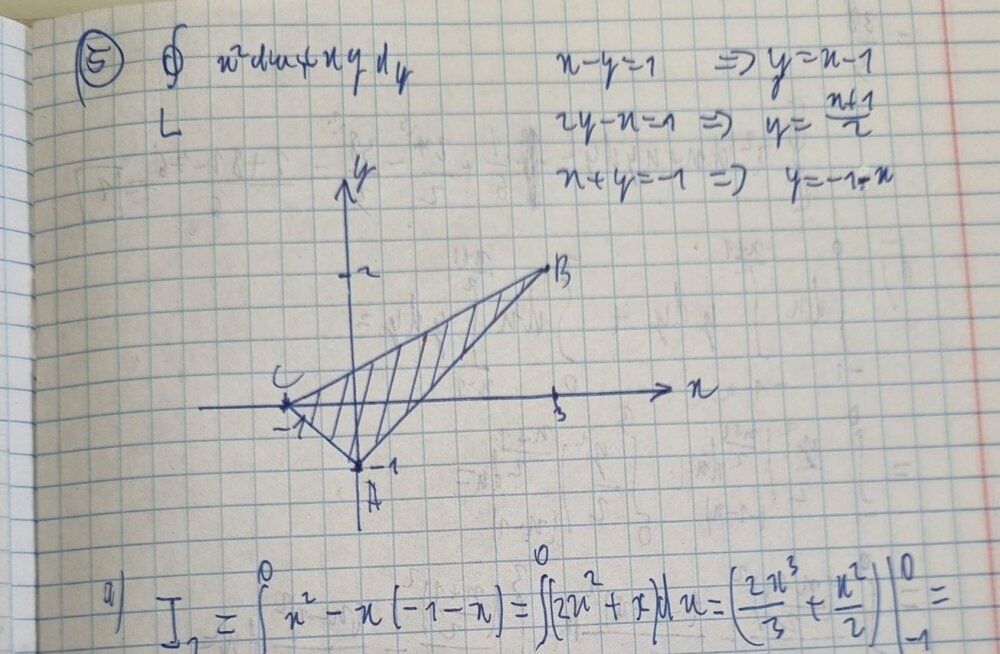 ⑤ ∮ x²dx + xy dy    x-y=1 => y=x-1
L    2y-x=1 => y=\frac{x+1}{2}
x+y=-1 => y=-1-x
y
2
B
C
-1
3
x
-1
A
a) I₁ = ∫⁰ x² - x(-1-x) = ∫⁰(2x²+x)dx = (\frac{2x³}{3} + \frac{x²}{2})|⁰₋₁ =